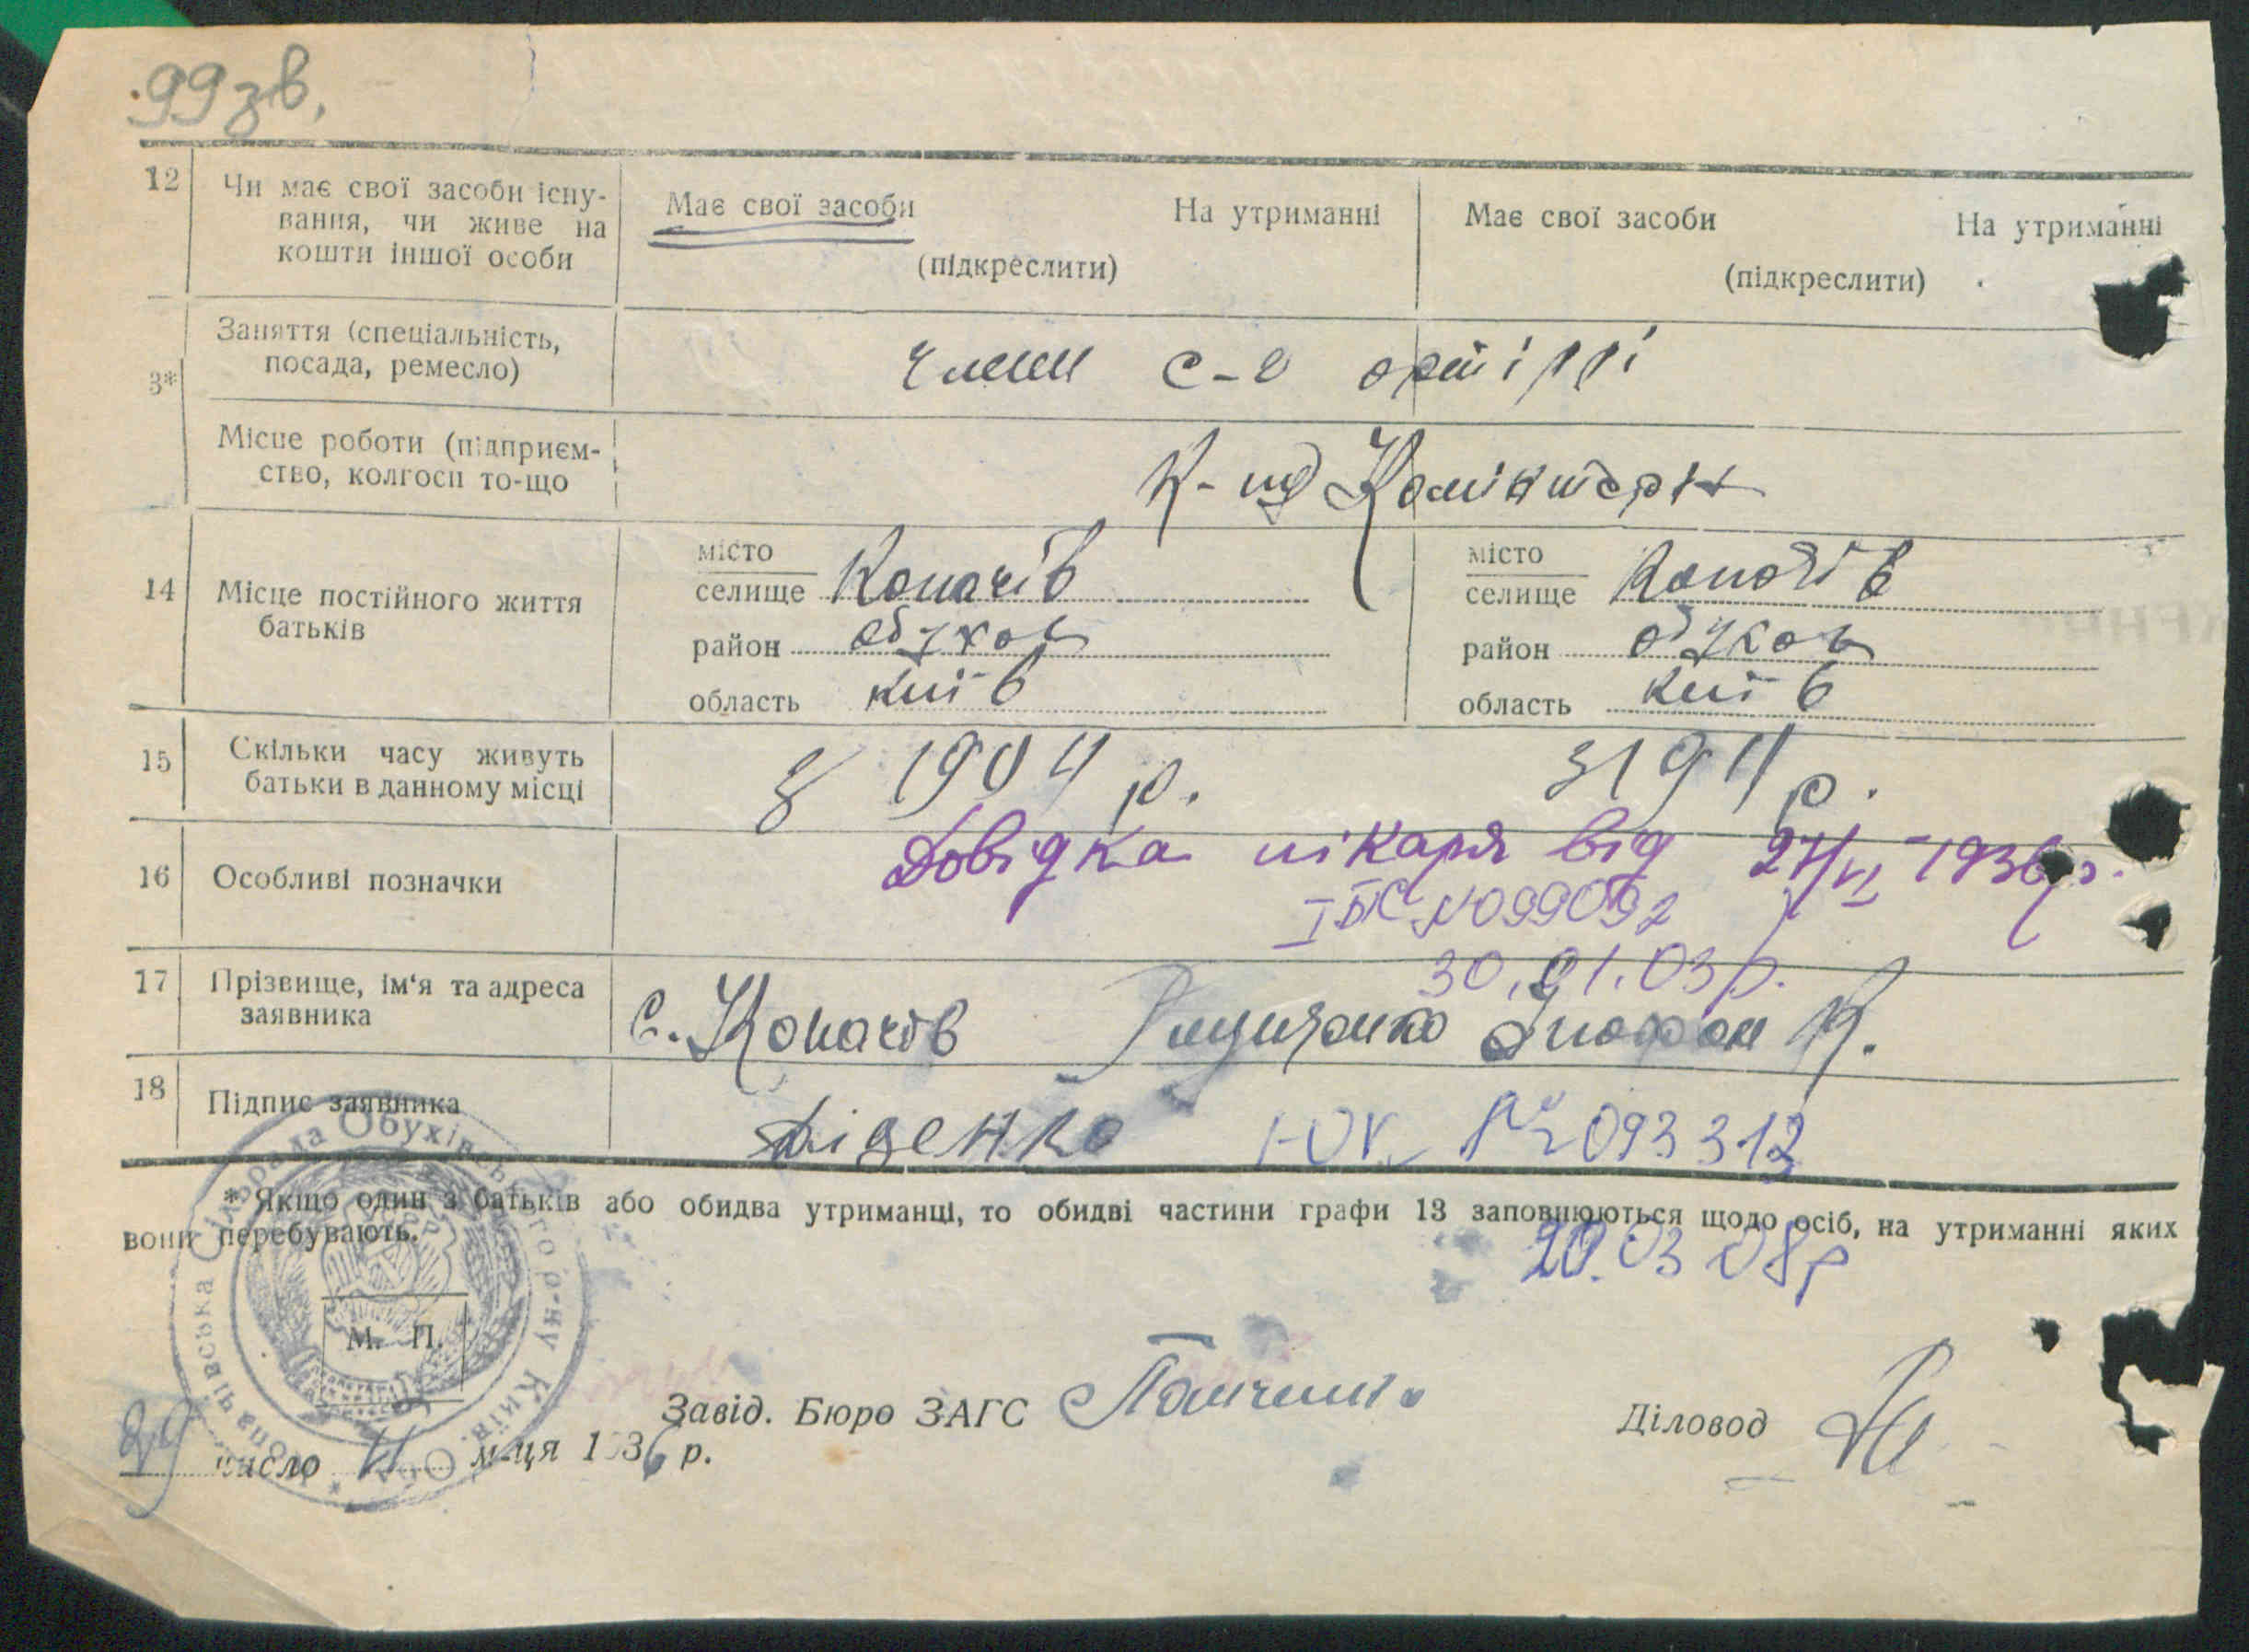 99 зв.
12 Чи має свої засоби існу-
вання, чи живе на
кошти іншої особи
Має свої засоби На утриманні
(підкреслити)
Має свої засоби На утриманні
(підкреслити)
3* Заняття (спеціальність,
посада, ремесло)
член с-г артілі
Місце роботи (підприєм-
ство, колгосп то-що
К-пд Комінтерн
14 Місце постійного життя
батьків
місто
селище Копачів
район Обухов
область Київ
місто
селище Копачів
район Обухов
область Київ
15 Скільки часу живуть
батьки в данному місці
З 1904 р.
З 1911 р.
16 Особливі позначки
Довідка лікаря від 27/VI-1936 р.
І БК №099092
30.01.03р.
17 Прізвище, ім'я та адреса
заявника
с. Копачов
18 Підпис заявника
Діденко
№ 093312
* Якщо один з батьків або обидва утриманці, то обидві частини графи 13 заповнюються щодо осіб, на утриманні яких
вони перебувають.
20.03 08р
Копачівська Сільрада Обухівського р-ну Київ. Обл.
М. П.
Завід. Бюро ЗАГС
Діловод
29 число м-ця 1936 р.